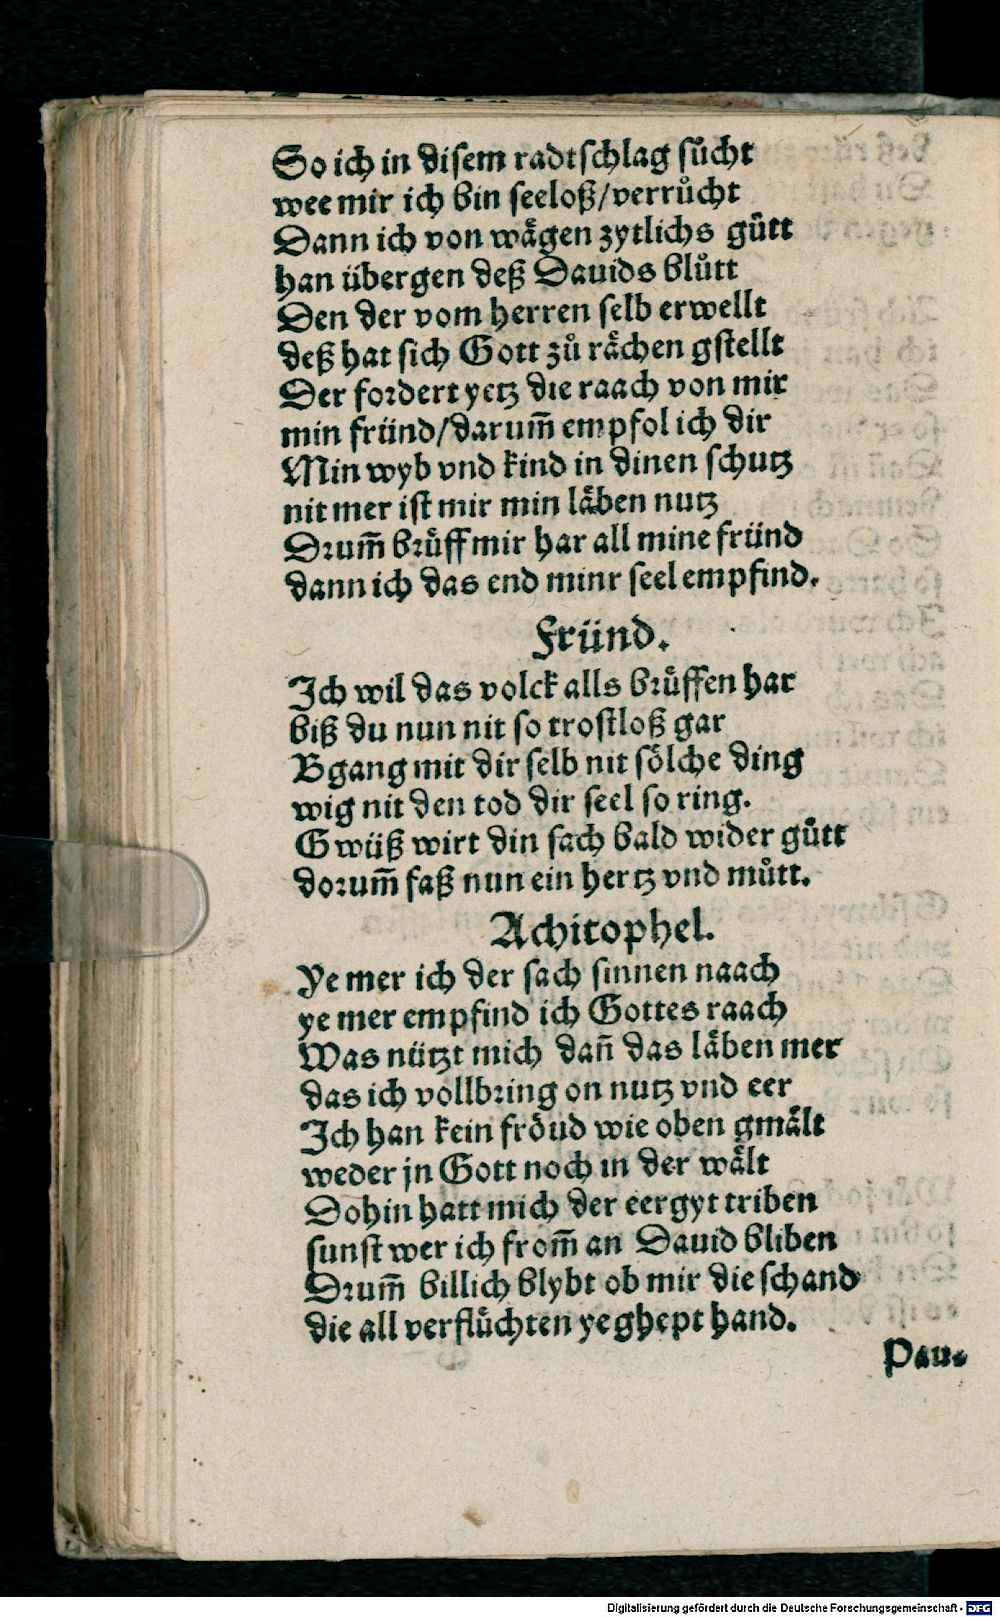 So ich in disem radtschlag sůcht
wee mir ich bin seeloß/verrůcht
Dann ich von wägen zytlichs gůtt
han übergen deß Dauids blůtt
Den der vom herren selb erwellt
deß hat sich Gott zů rächen gstellt
Der fordert yetz die raach von mir
min fründ/darum̃ empfol ich dir
Min wyb vnd kind in dinen schutz
nit mer ist mir min läben nutz
Drum̃ brůff mir har all mine fründ
dann ich das end minr seel empfind.
Fründ.
Ich wil das volck alls brůffen har
biß du nun nit so trostloß gar
Bgang mit dir selb nit sölche ding
wig nit den tod dir seel so ring.
Gwüß wirt din sach bald wider gůtt
dorum̃ faß nun ein hertz vnd můtt.
Achitophel.
Ye mer ich der sach sinnen naach
ye mer empfind ich Gottes raach
Was nützt mich dañ das läben mer
das ich vollbring on nutz vnd eer
Ich han kein fröud wie oben gmält
weder jn Gott noch in der wält
Dohin hatt mich der eergyt triben
sunst wer ich from̃ an Dauid bliben
Drum̃ billich blybt ob mir die schand
die all verflůchten ye ghept hand.
Pau.
Digitalisierung gefördert durch die Deutsche Forschungsgemeinschaft - DFG